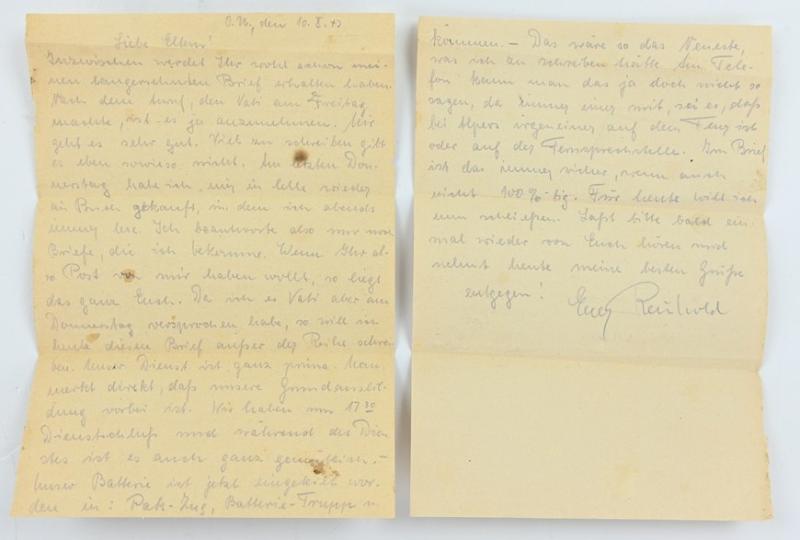 O.U., den 10. X. 43
Liebe Eltern!
Inzwischen werdet Ihr wohl schon mei-
nen langersehnten Brief erhalten haben.
Nach dem Anruf, den Vati am Freitag
machte, ist es ja anzunehmen. Mir
geht es sehr gut. Viel zu schreiben gibt
es eben sowieso nicht. Am letzten Don-
nerstag habe ich mir in wieder
ein Buch gekauft, in dem ich abends
immer lese. Ich beantworte also nur noch
Briefe, die ich bekomme. Wenn Ihr al-
so Post von mir haben wollt, so liegt
das ganz Euch. Da ich es Vati aber am
Donnerstag versprochen habe, so will ich
heute diesen Brief außer der Reihe schrei-
ben. Unser Dienst ist ganz prima. Man
merkt direkt, daß unsere Grundausbil-
dung vorbei ist. Wir haben um 17 30
Dienstschluß und während des Dien-
stes ist es auch ganz gemütlich. -
Unser Batterie ist jetzt eingeteilt wor-
den in: Pak-Zug, Batterie-Trupp u.
können. - Das wäre so das Neueste,
was ich zu schreiben hätte. Am Tele-
fon kann man das ja doch nicht so
sagen, da immer einer mit, sei es, daß
bei Alpers irgeneiner auf dem ist
oder auf der Fernsprechstelle. Im Brief
ist das immer sicher, wenn auch
nicht 100%-tig. Für heute will ich
nun schließen. Laßt bitte bald ein-
mal wieder von Euch hören und
nehmt heute meine besten Grüße
entgegen!
Euer Reinhold